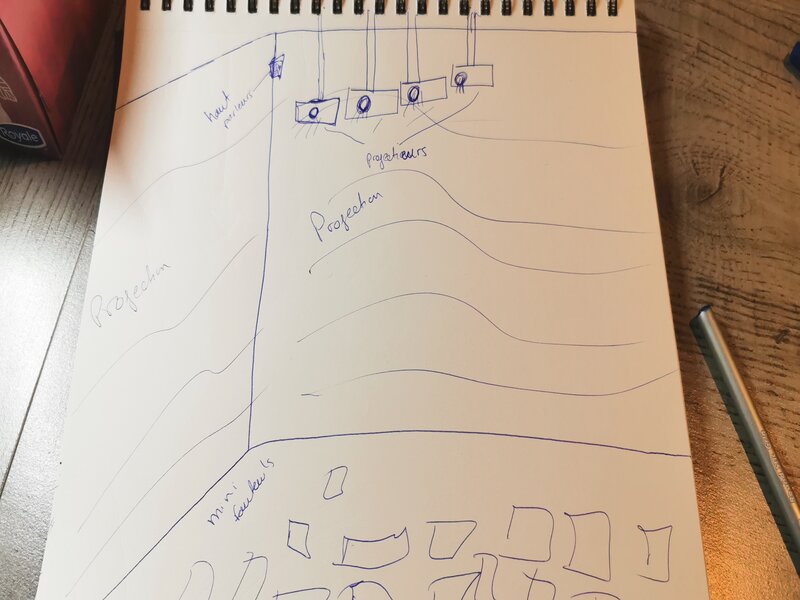 Royale
haut
parleurs
projecteurs
Projection
Projection
mini
fauteuils